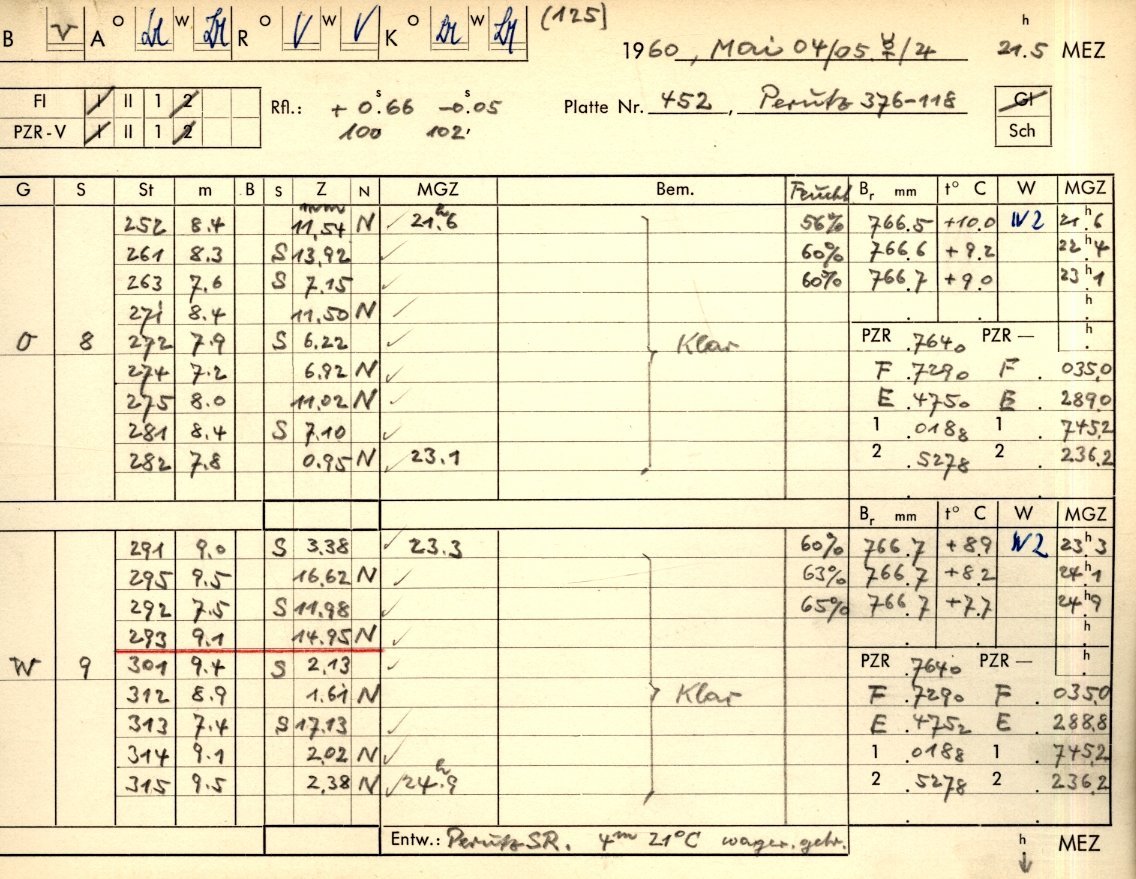 B v A o w R o V w V K o w (125)
1960, Mai 04/05. /4 21.5 h MEZ
Fl I II 1 2 Rfl.: + 0.66 s -0.05 s Platte Nr. 452, Perutz 376-118 Gl
PZR-V I II 1 2 100 102' Sch
G S St m B S Z N MGZ Bem. Feucht Br mm t° C W MGZ
mm
252 8.4 11,54 N ✓ 21.6 h 56% 766.5 +10.0 W2 21.6 h
261 8.3 S 13,92 ✓ 60% 766.6 +9.2 22.4 h
263 7.6 S 7.15 ✓ 60% 766.7 +9.0 23.1 h
271 8.4 11.50 N ✓ h
O 8 272 7.9 S 6.22 ✓ Klar PZR .7640 PZR – h
274 7.2 6.92 N ✓ F .7290 F . 035.0
275 8.0 11.02 N ✓ E .4750 E . 289.0
281 8.4 S 7.10 ✓ 1 .0188 1 745.2
282 7.8 0.95 N ✓ 23.1 2 .5278 2 236.2
Br mm t° C W MGZ
291 9.0 S 3.38 ✓ 23.3 60% 766.7 +8.9 W2 23.3 h
295 9.5 16.62 N ✓ 63% 766.7 +8.2 24.1 h
292 7.5 S 11.98 ✓ 65% 766.7 +7.7 24.9 h
293 9.1 14.95 N ✓ h
W 9 301 9.4 S 2.13 ✓ PZR .7640 PZR – h
312 8.9 1.61 N Klar F .7290 F . 035.0
313 7.4 S 17.13 ✓ E .4752 E 288.8
314 9.1 2.02 N ✓ 1 .0188 1 745.2
315 9.5 2.38 N ✓ 24.9 h 2 .5278 2 . 236.2
Entw.: Perutz SR. 4m 21°C wager. gehr. h ↓ MEZ